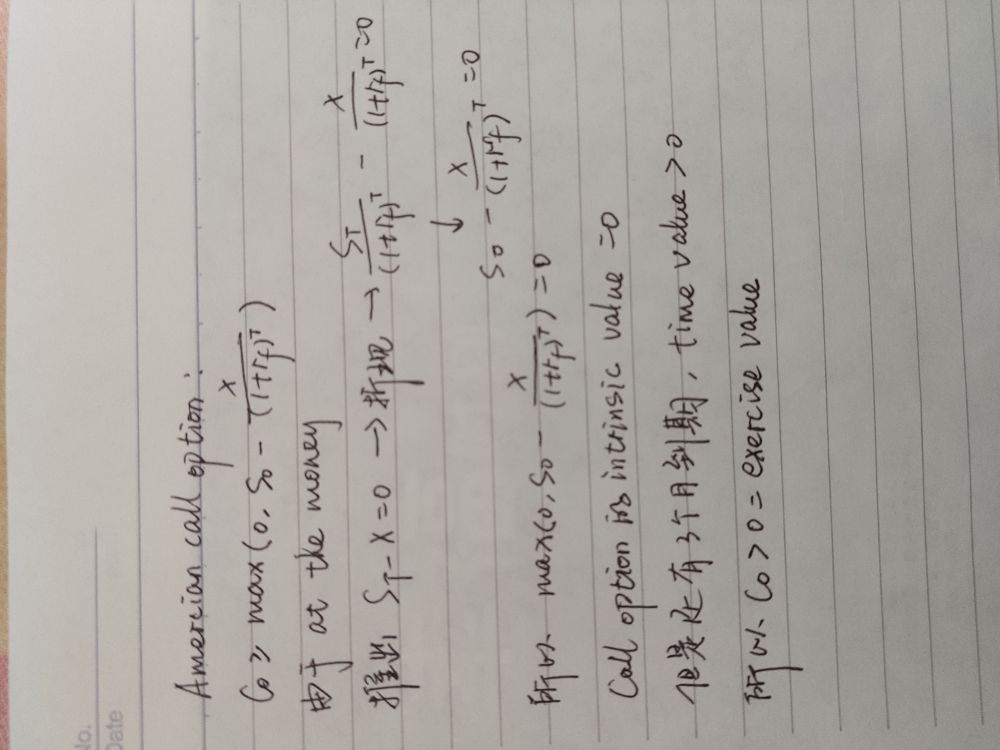 No.
Date
Amercian call option:
C₀ ≥ max(0, S₀ - X/(1+rf)^T)
由于 at the money
推出 S_T - X = 0 → 折现 → S_T/(1+rf)^T - X/(1+rf)^T = 0
↓
S₀ - X/(1+rf)^T = 0
所以 max(0, S₀ - X/(1+rf)^T) = 0
Call option 的 intrinsic value = 0
但是还有3个月到期, time value > 0
所以 C₀ > 0 = exercise value